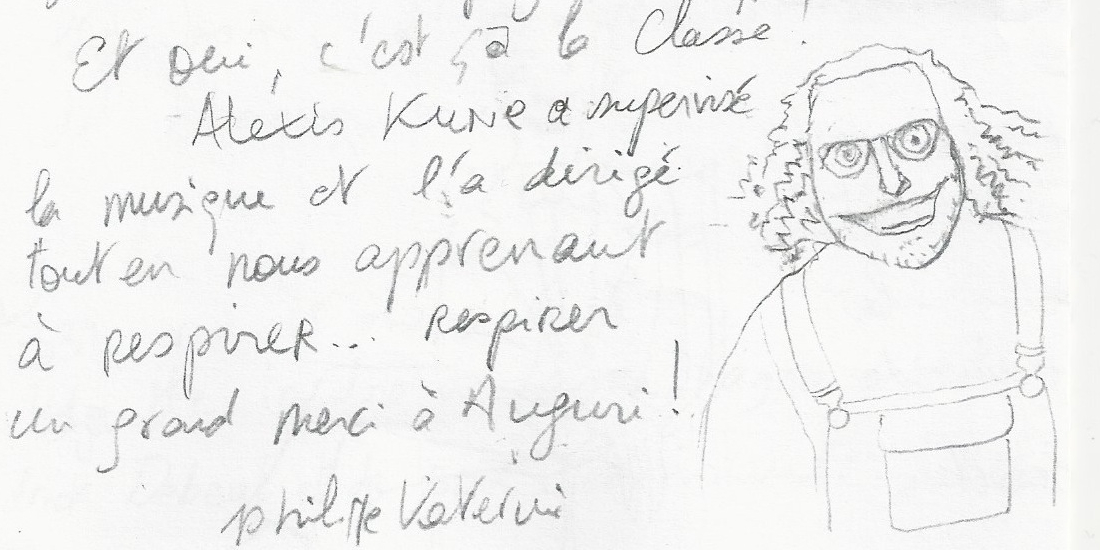 Et oui, c'est ça la Classe !
Alexis Kune a supervisé
la musique et l'a dirigé
tout en nous apprenant
à respirer... respirer
un grand merci à Auguri !
philippe